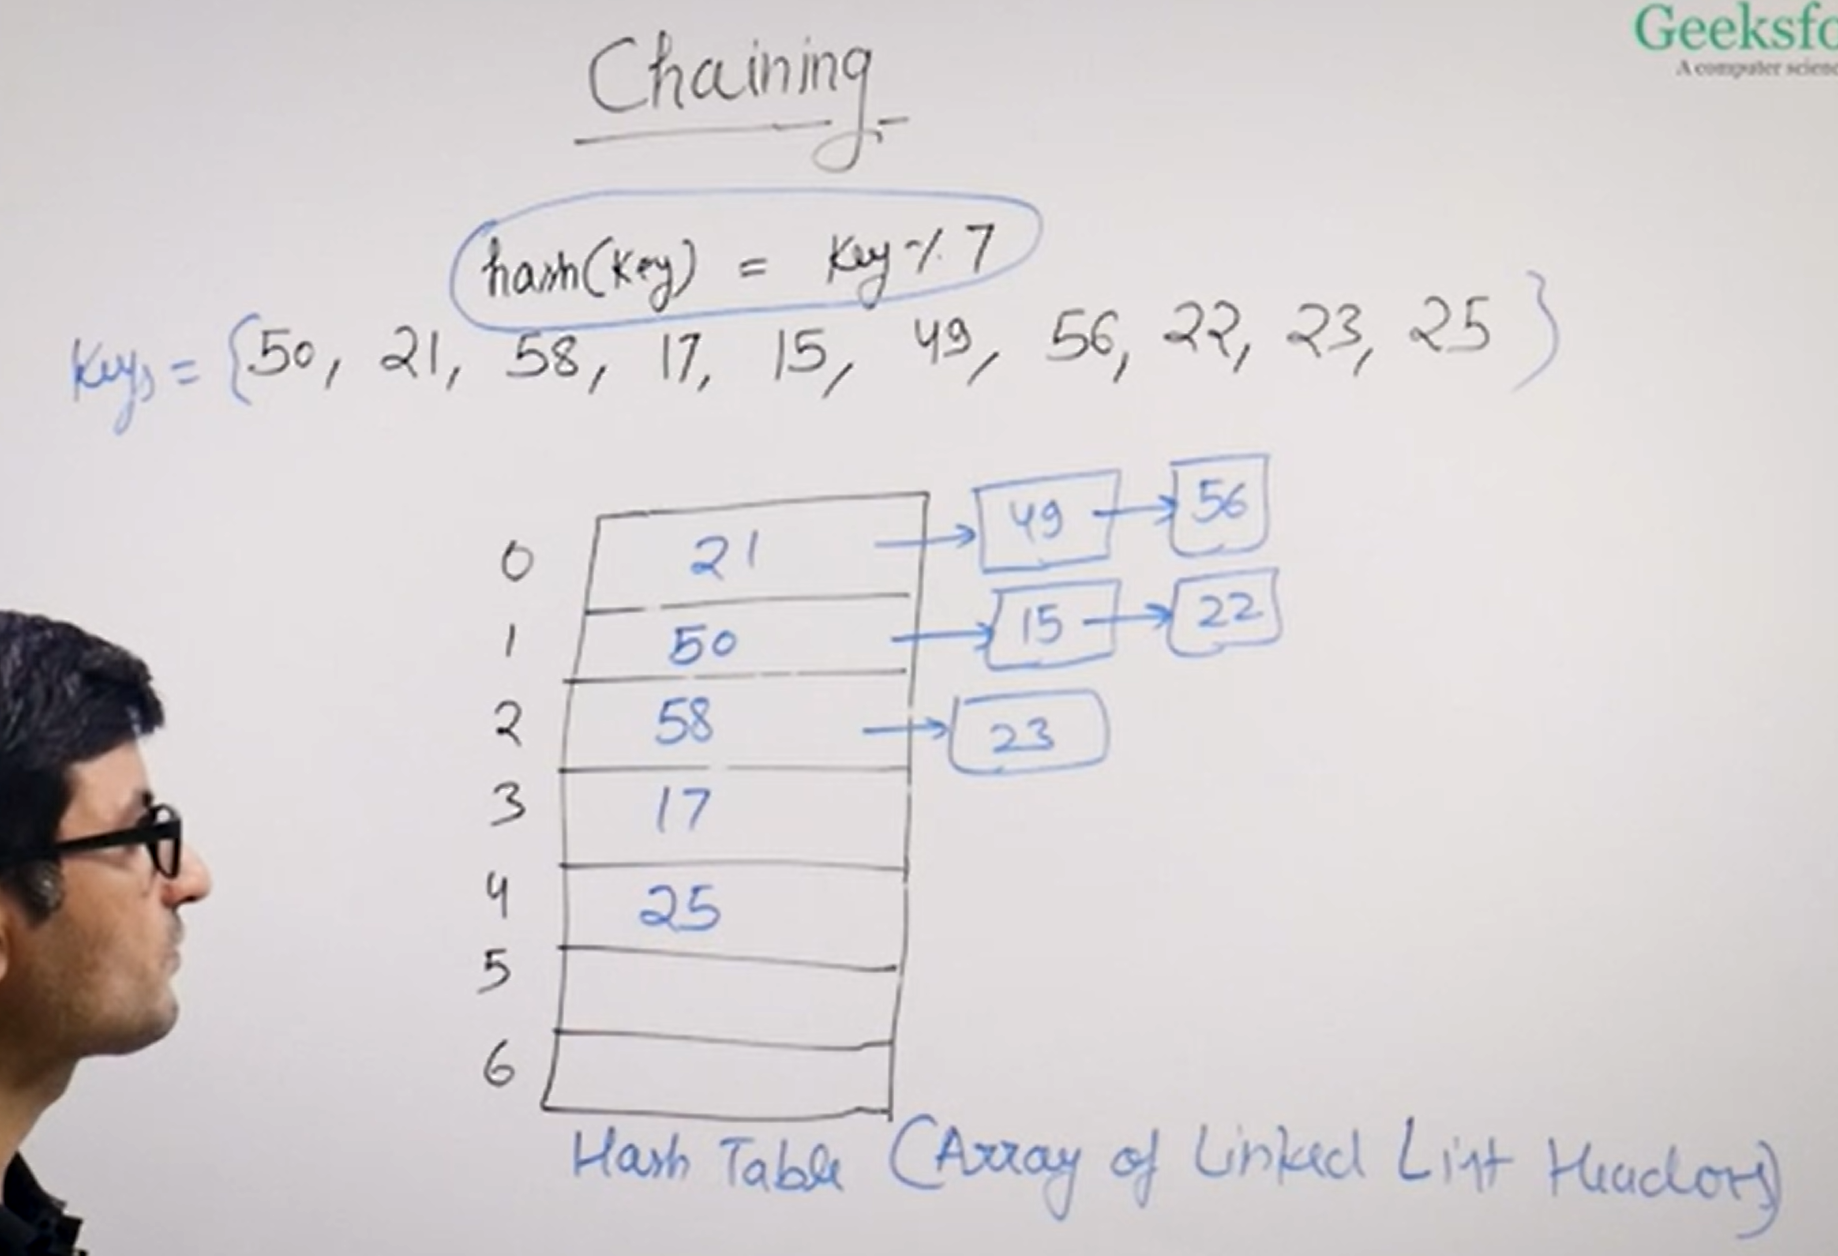 Geeksfo
A computer scienc
Chaining
hash(key) = key % 7
Keys = {50, 21, 58, 17, 15, 49, 56, 22, 23, 25}
0 21 → 49 → 56
1 50 → 15 → 22
2 58 → 23
3 17
4 25
5
6
Hash Table (Array of Linked List Headers)